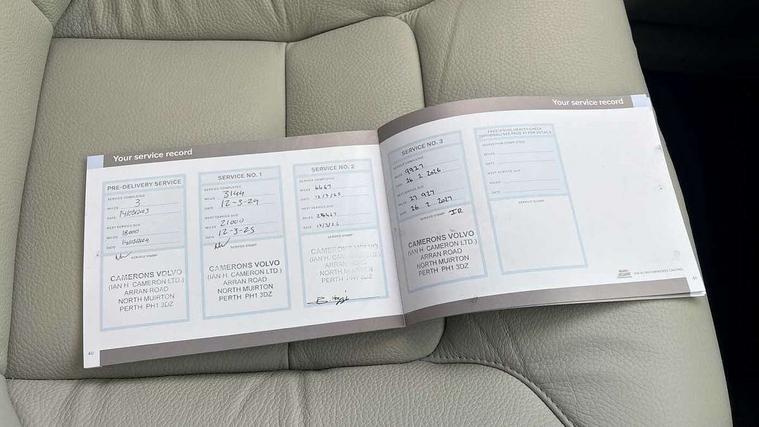 Your service record
PRE-DELIVERY SERVICE
SERVICE COMPLETED
MILES 3
DATE
NEXT SERVICE DUE
MILES 18000
DATE
SERVICE STAMP
CAMERONS VOLVO
(IAN H. CAMERON LTD.)
ARRAN ROAD
NORTH MUIRTON
PERTH PH1 3DZ
SERVICE NO. 1
SERVICE COMPLETED
MILES 3144
DATE 12-3-24
NEXT SERVICE DUE
MILES 21000
DATE 12-3-25
SERVICE STAMP
CAMERONS VOLVO
(IAN H. CAMERON LTD.)
ARRAN ROAD
NORTH MUIRTON
PERTH PH1 3DZ
SERVICE NO. 2
SERVICE COMPLETED
MILES 6467
DATE
NEXT SERVICE DUE
MILES
DATE
SERVICE STAMP
CAMERONS VOLVO
(IAN H. CAMERON LTD.)
ARRAN ROAD
NORTH MUIRTON
PERTH PH1 3DZ
40
Your service record
SERVICE NO. 3
SERVICE COMPLETED
MILES 9927
DATE 26. 2. 2026
NEXT SERVICE DUE
MILES 27 927
DATE 26. 2. 2027
SERVICE STAMP IR
CAMERONS VOLVO
(IAN H. CAMERON LTD.)
ARRAN ROAD
NORTH MUIRTON
PERTH PH1 3DZ
FREE VISUAL HEALTH CHECK
MILES
DATE
NEXT SERVICE DUE
MILES
DATE
SERVICE STAMP
41